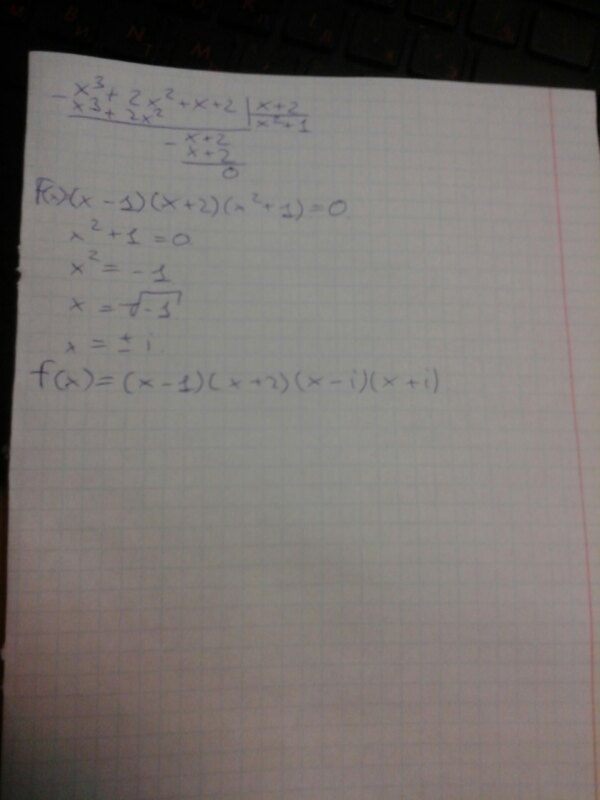 - x³ + 2x² + x + 2 | x + 2
x³ + 2x² | x² + 1
- x + 2
x + 2
0
F(x)(x - 1)(x + 2)(x² + 1) = 0
x² + 1 = 0
x² = - 1
x = √-1
x = ± i.
f(x) = (x - 1)(x + 2)(x - i)(x + i)